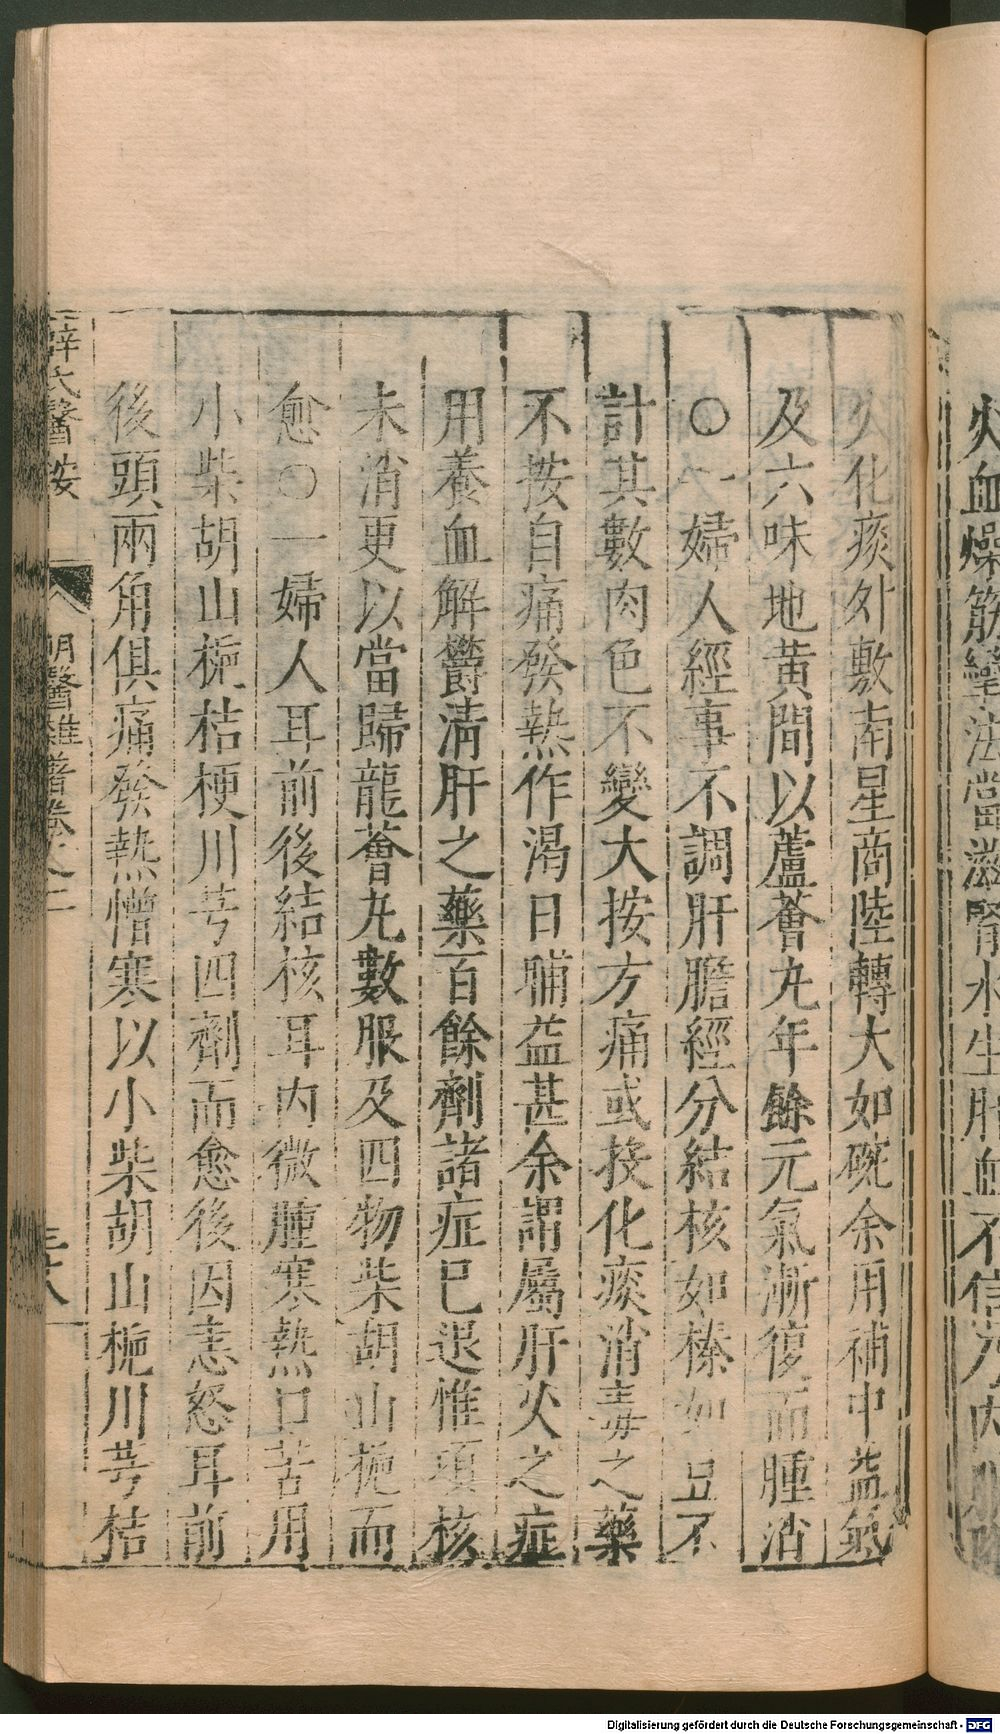 火血燥筋攣法當滋腎水生肝血不信乃內服
火化痰外敷南星商陸轉大如碗余用補中益氣
及六味地黃間以蘆薈丸年餘元氣漸復而腫消
○一婦人經事不調肝膽經分結核如榛如豆不
計其數肉色不變大按方痛或投化痰消毒之藥
不按自痛發熱作渴日晡益甚余謂屬肝火之症
用養血解欝淸肝之藥百餘劑諸症已退惟項核
未消更以當歸龍薈丸數服及四物柴胡山梔而
愈○一婦人耳前後結核耳内微腫寒熱口苦用
小柴胡山梔桔梗川芎四劑而愈後因恚怒耳前
後頭兩角俱痛發熱憎寒以小柴胡山梔川芎桔
薛氏醫按 明醫雜著卷之二 三十八
Digitalisierung gefördert durch die Deutsche Forschungsgemeinschaft - DFG